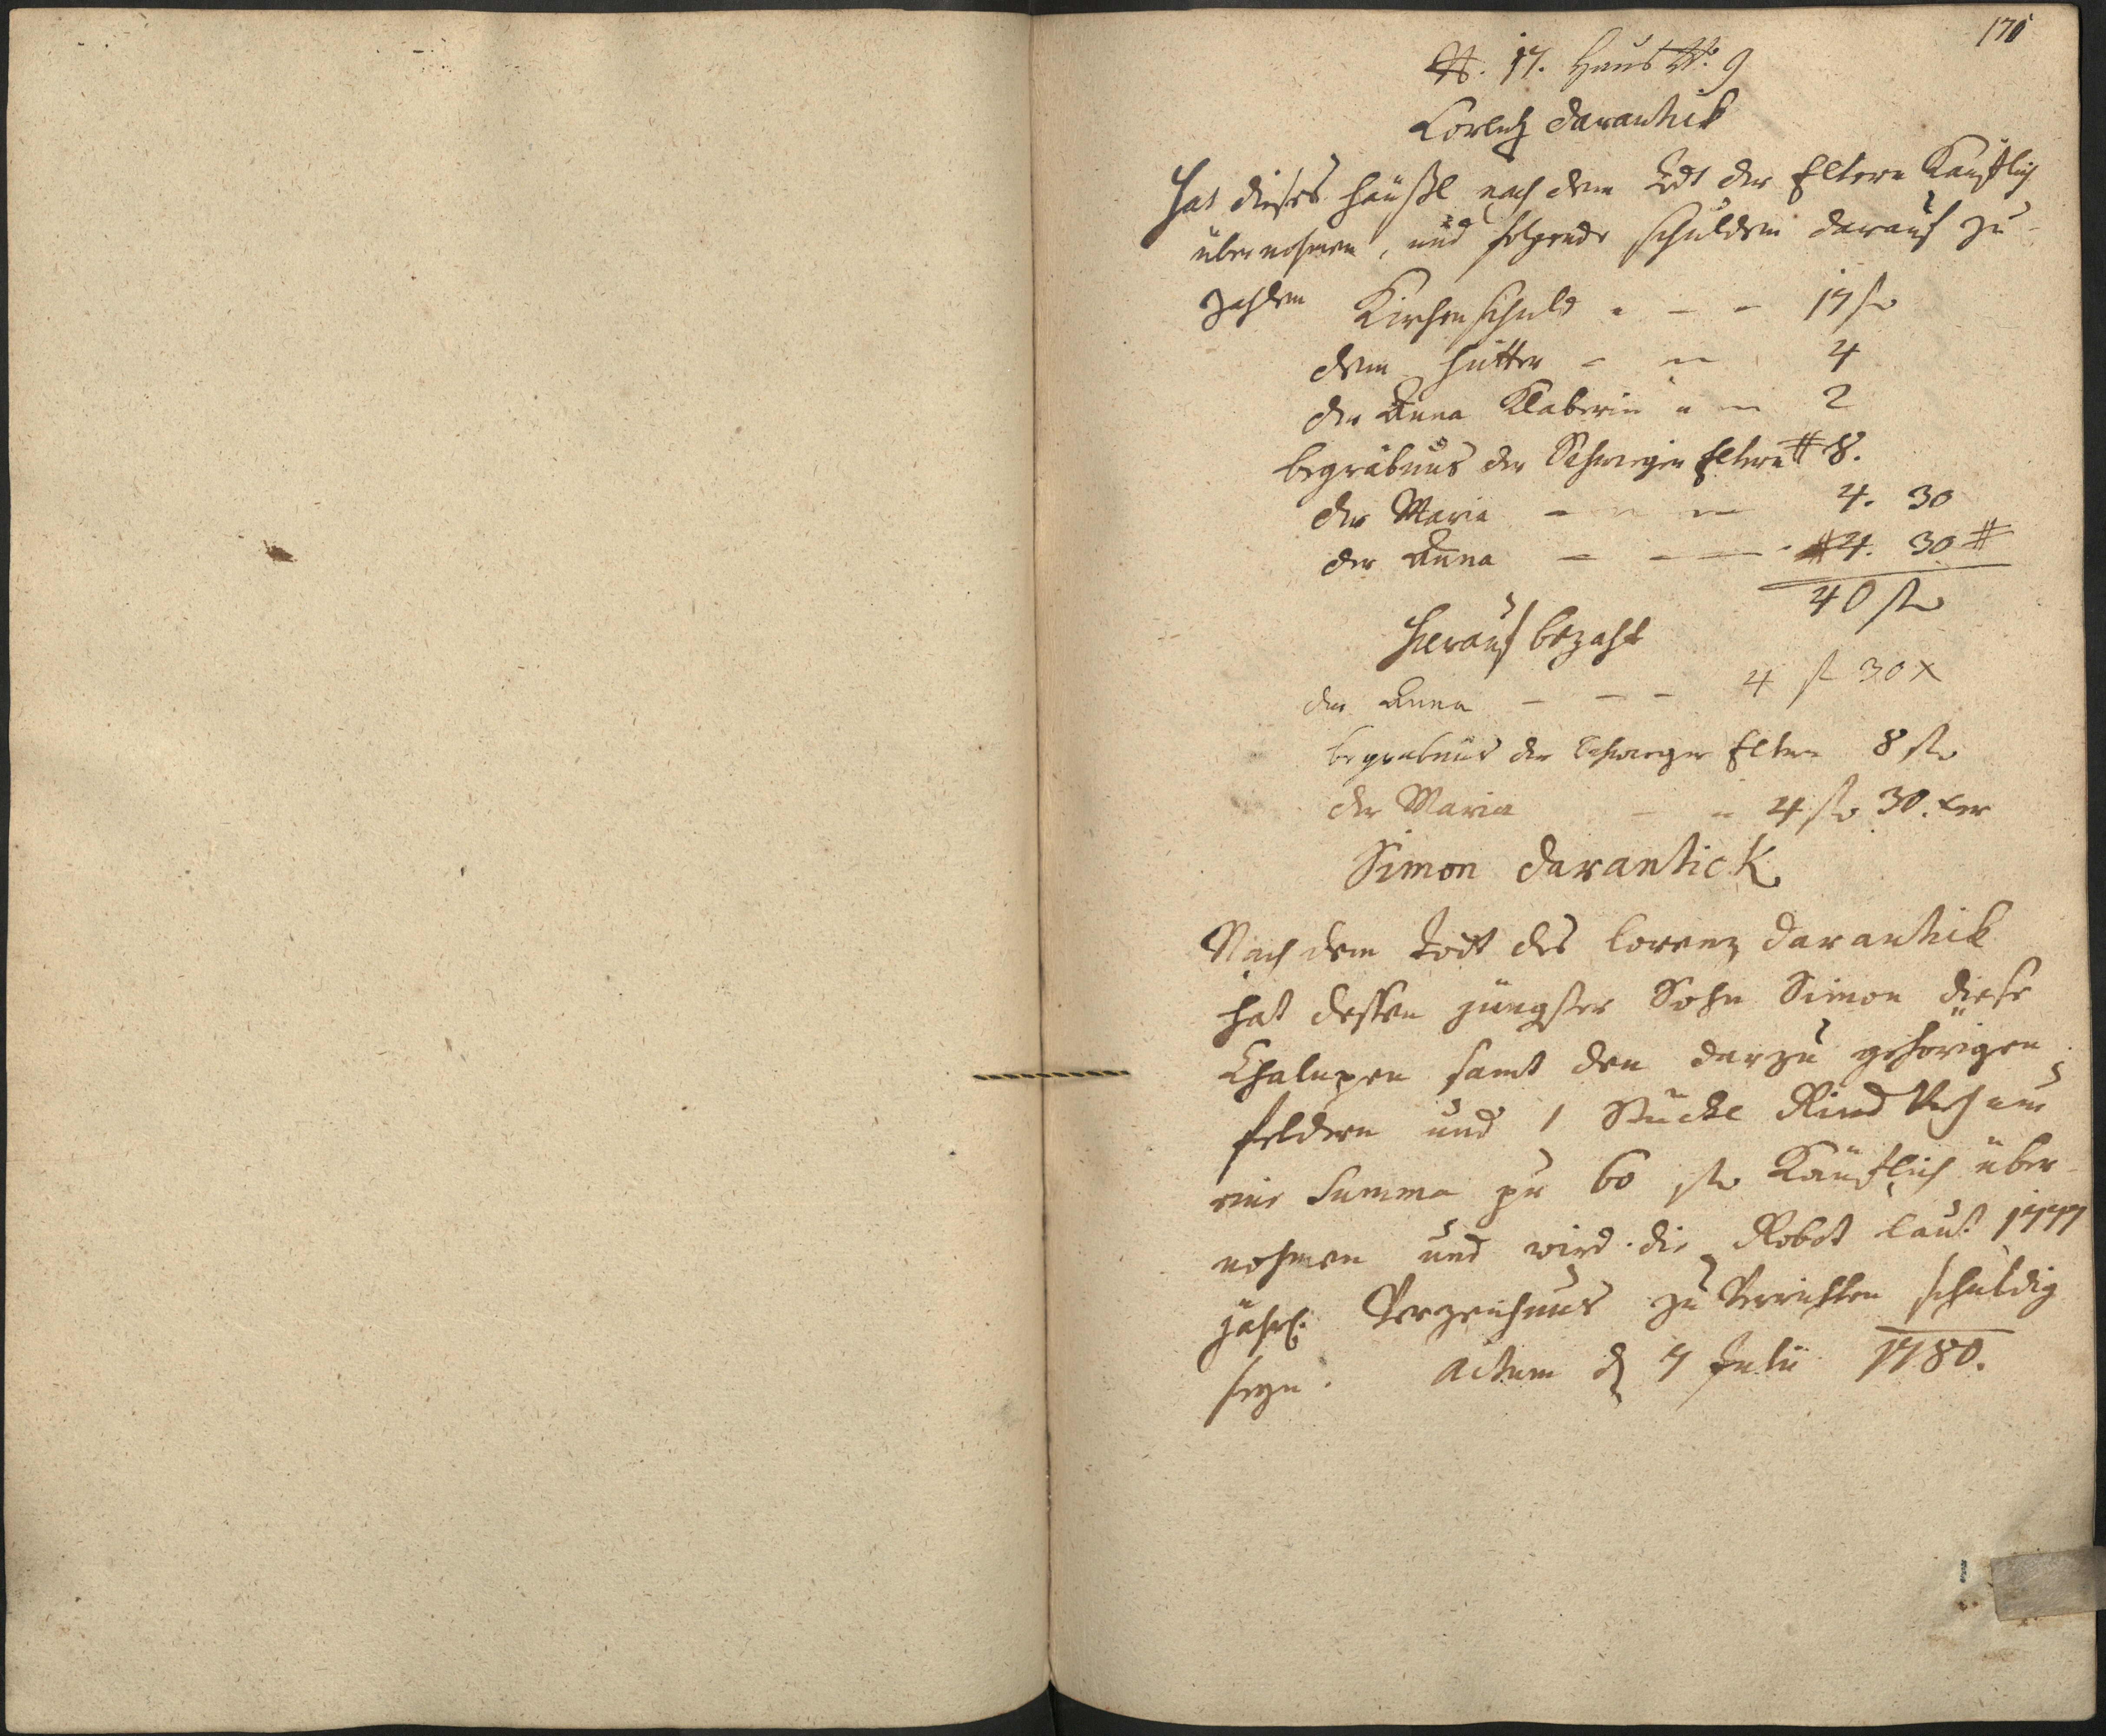 170
N. 17. Haus No. 9
Lorentz Darantick
Hat dieses Häußl nach dem Todt der Eltern Kaufflich
übernohmen, und folgende schulden darauf zu
zahlen Kirchen schuld - - - 17 fl
dem Hütter - - 4
der Anna Klaberin - - 2
begräbnus der Schwieger Eltern # 8.
der Maria - - - 4. 30
der Anna - - - # 4. 30 #
40 fl
Hierauf bezahlt
der Anna - - - 4 fl 30 x
begräbnus der schwieger Eltern 8 fl
der Maria - - 4 fl 30. xer
Simon Darantick
Nach dem Todt des Lorenz Darantick
hat dessen jüngster Sohn Simon diese
Chalupen samt den darzu gehörigen
feldern und 1 Stückl Rind Vieh um
eine Summa pr 60 fl Käuflich über-
nohmen und wird die Robot laut 1777
jährl. Verzeichnus zu Verrichten schuldig
seyn. Actum d 7 Julii 1780.